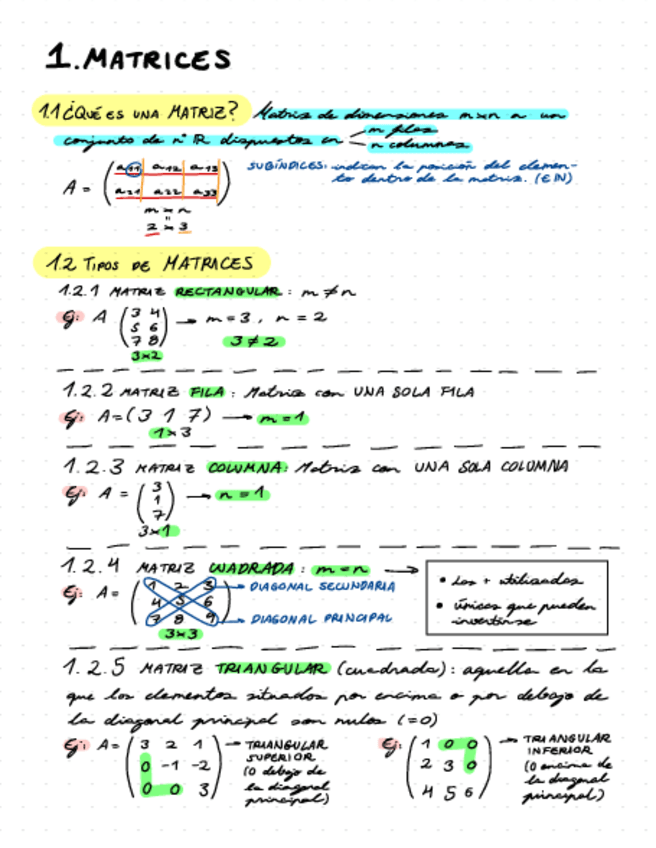 1. MATRICES
1.1 ¿QUÉ ES UNA MATRIZ? Matriz de dimensiones m×n a un
conjunto de nº R dispuestos en m filas
n columnas
A = (a11 a12 a13
a21 a22 a33)
SUBÍNDICES: indican la posición del elemen-
to dentro de la matriz. (∈ N)
m × n
"
2 × 3
1.2 TIPOS DE MATRICES
1.2.1 MATRIZ RECTANGULAR: m ≠ n
Ej: A (3 4
5 6
7 8) → m = 3, n = 2
3×2
3 ≠ 2
1.2.2 MATRIZ FILA: Matriz con UNA SOLA FILA
Ej: A = (3 1 7) → m = 1
1×3
1.2.3 MATRIZ COLUMNA: Matriz con UNA SOLA COLUMNA
Ej: A = (3
1
7) → n = 1
3×1
1.2.4 MATRIZ CUADRADA: m = n →
• Las + utilizadas
• únicas que pueden
invertirse
Ej: A = (1 2 3
4 5 6
7 8 9)
→ DIAGONAL SECUNDARIA
→ DIAGONAL PRINCIPAL
3×3
1.2.5 MATRIZ TRIANGULAR (cuadrada): aquella en la
que los elementos situados por encima o por debajo de
la diagonal principal son nulos (=0)
Ej: A = (3 2 1
0 -1 -2
0 0 3)
→ TRIANGULAR
SUPERIOR
(0 debajo de
la diagonal
principal)
Ej: (1 0 0
2 3 0
4 5 6)
→ TRIANGULAR
INFERIOR
(0 encima de
la diagonal
principal)